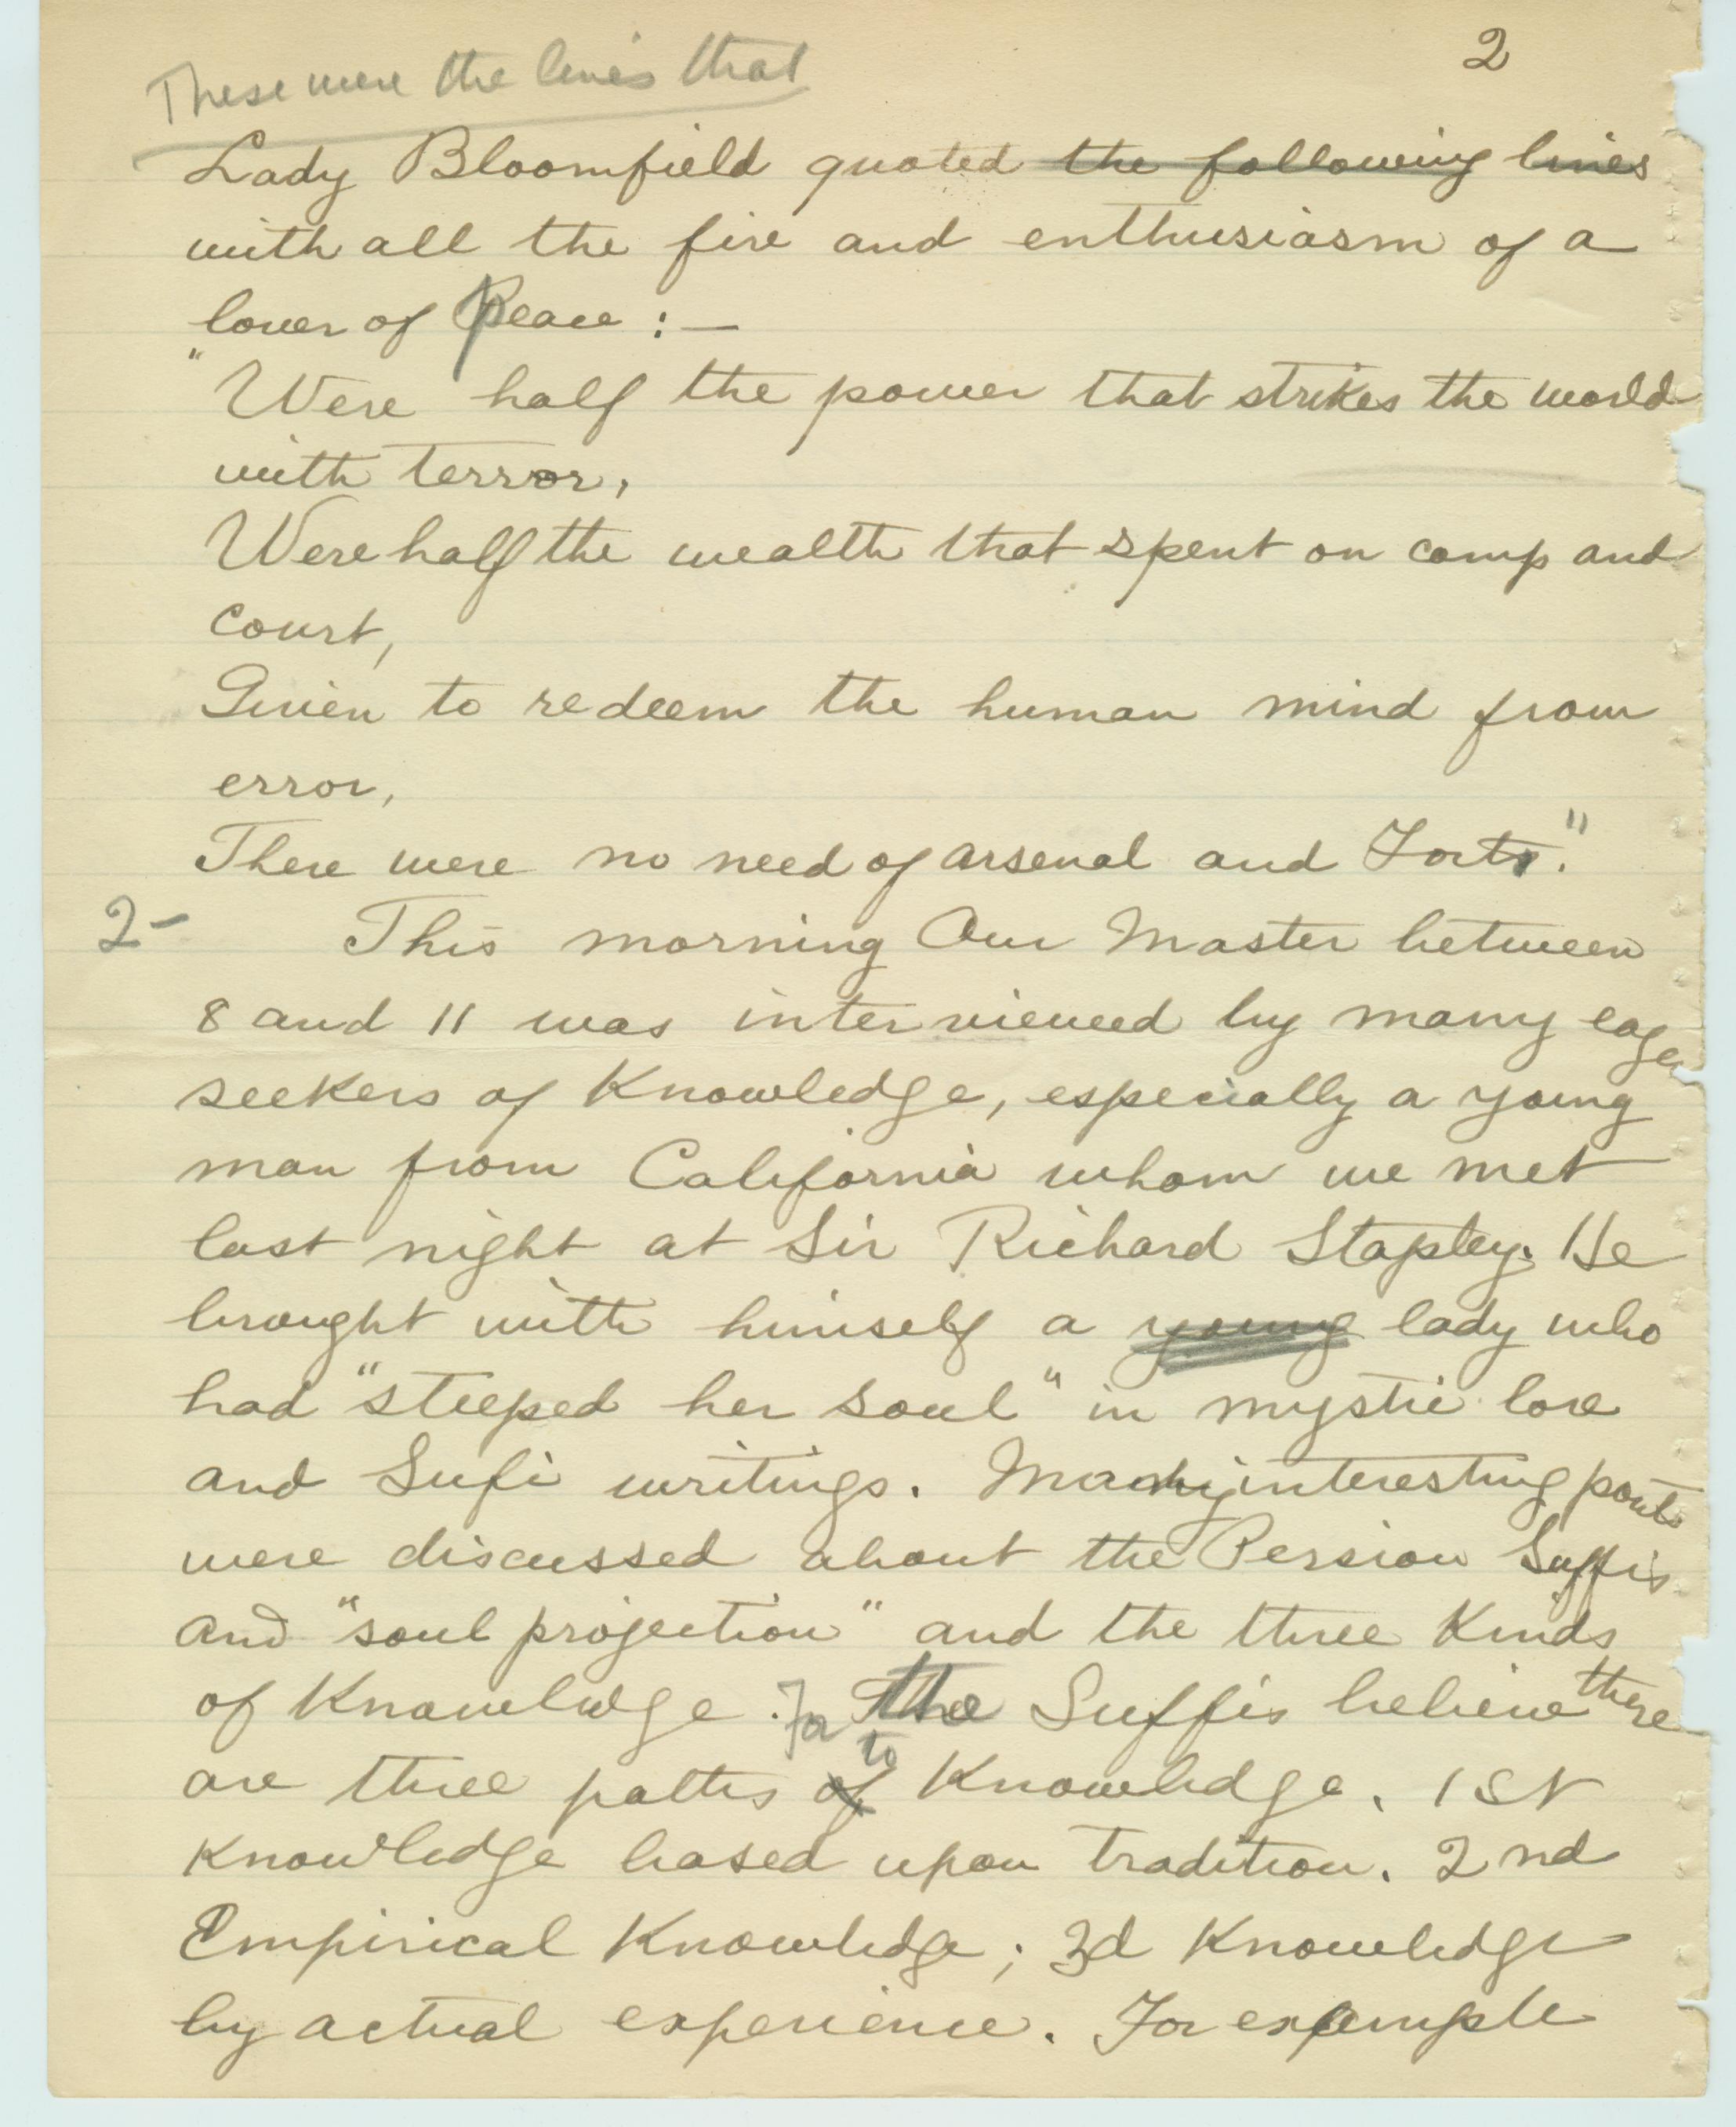 2
These were the lines that
Lady Bloomfield quoted the following lines
with all the fire and enthusiasm of a
lover of peace : —
"Were half the power that strikes the world
with terror,
Were half the wealth that spent on camp and
court,
Given to redeem the human mind from
error,
There were no need of arsenal and Forts."
2- This morning Our Master between
8 and 11 was interviewed by many eager
seekers of Knowledge, especially a young
man from California whom we met
last night at Sir Richard Stapley. He
brought with himself a young lady who
had "steeped her soul" in mystic lore
and Sufi writings. Many interesting points
were discussed about the Persian Suffis
and "soul projection" and the three Kinds
of Knowledge. For the Suffis believe there
to
are three paths of Knowledge. 1st
Knowledge based upon tradition. 2nd
Empirical Knowledge; 3d Knowledge
by actual experience. For example